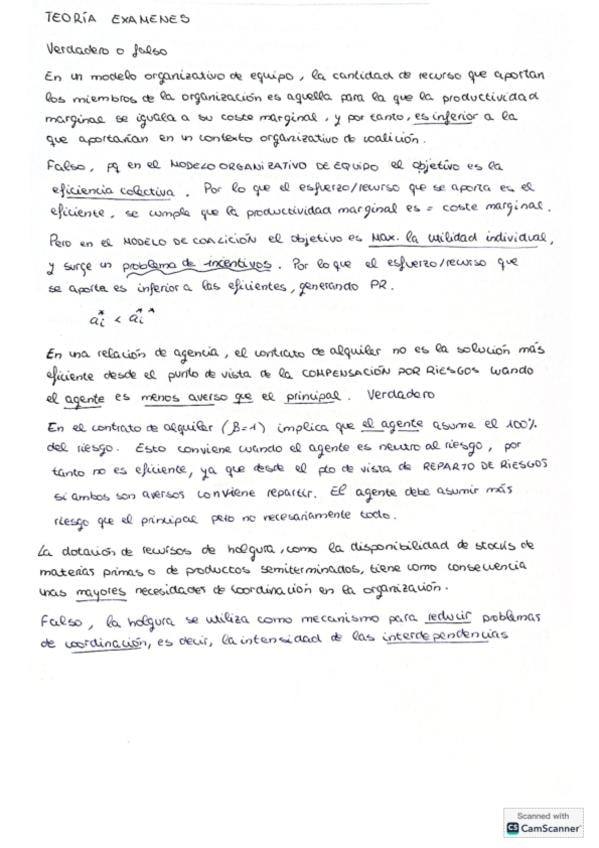 TEORÍA EXAMENES
Verdadero o falso
En un modelo organizativo de equipo, la cantidad de recurso que aportan
los miembros de la organización es aquella para la que la productividad
marginal se iguala a su coste marginal, y por tanto, es inferior a la
que aportarían en un contexto organizativo de coalición.
Falso, pq en el MODELO ORGANIZATIVO DE EQUIPO el objetivo es la
eficiencia colectiva. Por lo que el esfuerzo/recurso que se aporta es el
eficiente, se cumple que la productividad marginal es = coste marginal.
Pero en el MODELO DE COALICIÓN el objetivo es Max. la utilidad individual,
y surge un problema de incentivos. Por lo que el esfuerzo/recurso que
se aporta es inferior a las eficientes, generando PR.
ai* < ai**
En una relación de agencia, el contrato de alquiler no es la solución más
eficiente desde el punto de vista de la COMPENSACIÓN POR RIESGOS cuando
el agente es menos averso que el principal. Verdadero
En el contrato de alquiler (β=1) implica que el agente asume el 100%
del riesgo. Esto conviene cuando el agente es neutro al riesgo, por
tanto no es eficiente, ya que desde el pto de vista de REPARTO DE RIESGOS
si ambos son aversos conviene repartir. El agente debe asumir más
riesgo que el principal pero no necesariamente todo.
La dotación de recursos de holgura, como la disponibilidad de stocks de
materias primas o de productos semiterminados, tiene como consecuencia
unas mayores necesidades de coordinación en la organización.
Falso, la holgura se utiliza como mecanismo para reducir problemas
de coordinación, es decir, la intensidad de las interdependencias
Scanned with
CS CamScanner